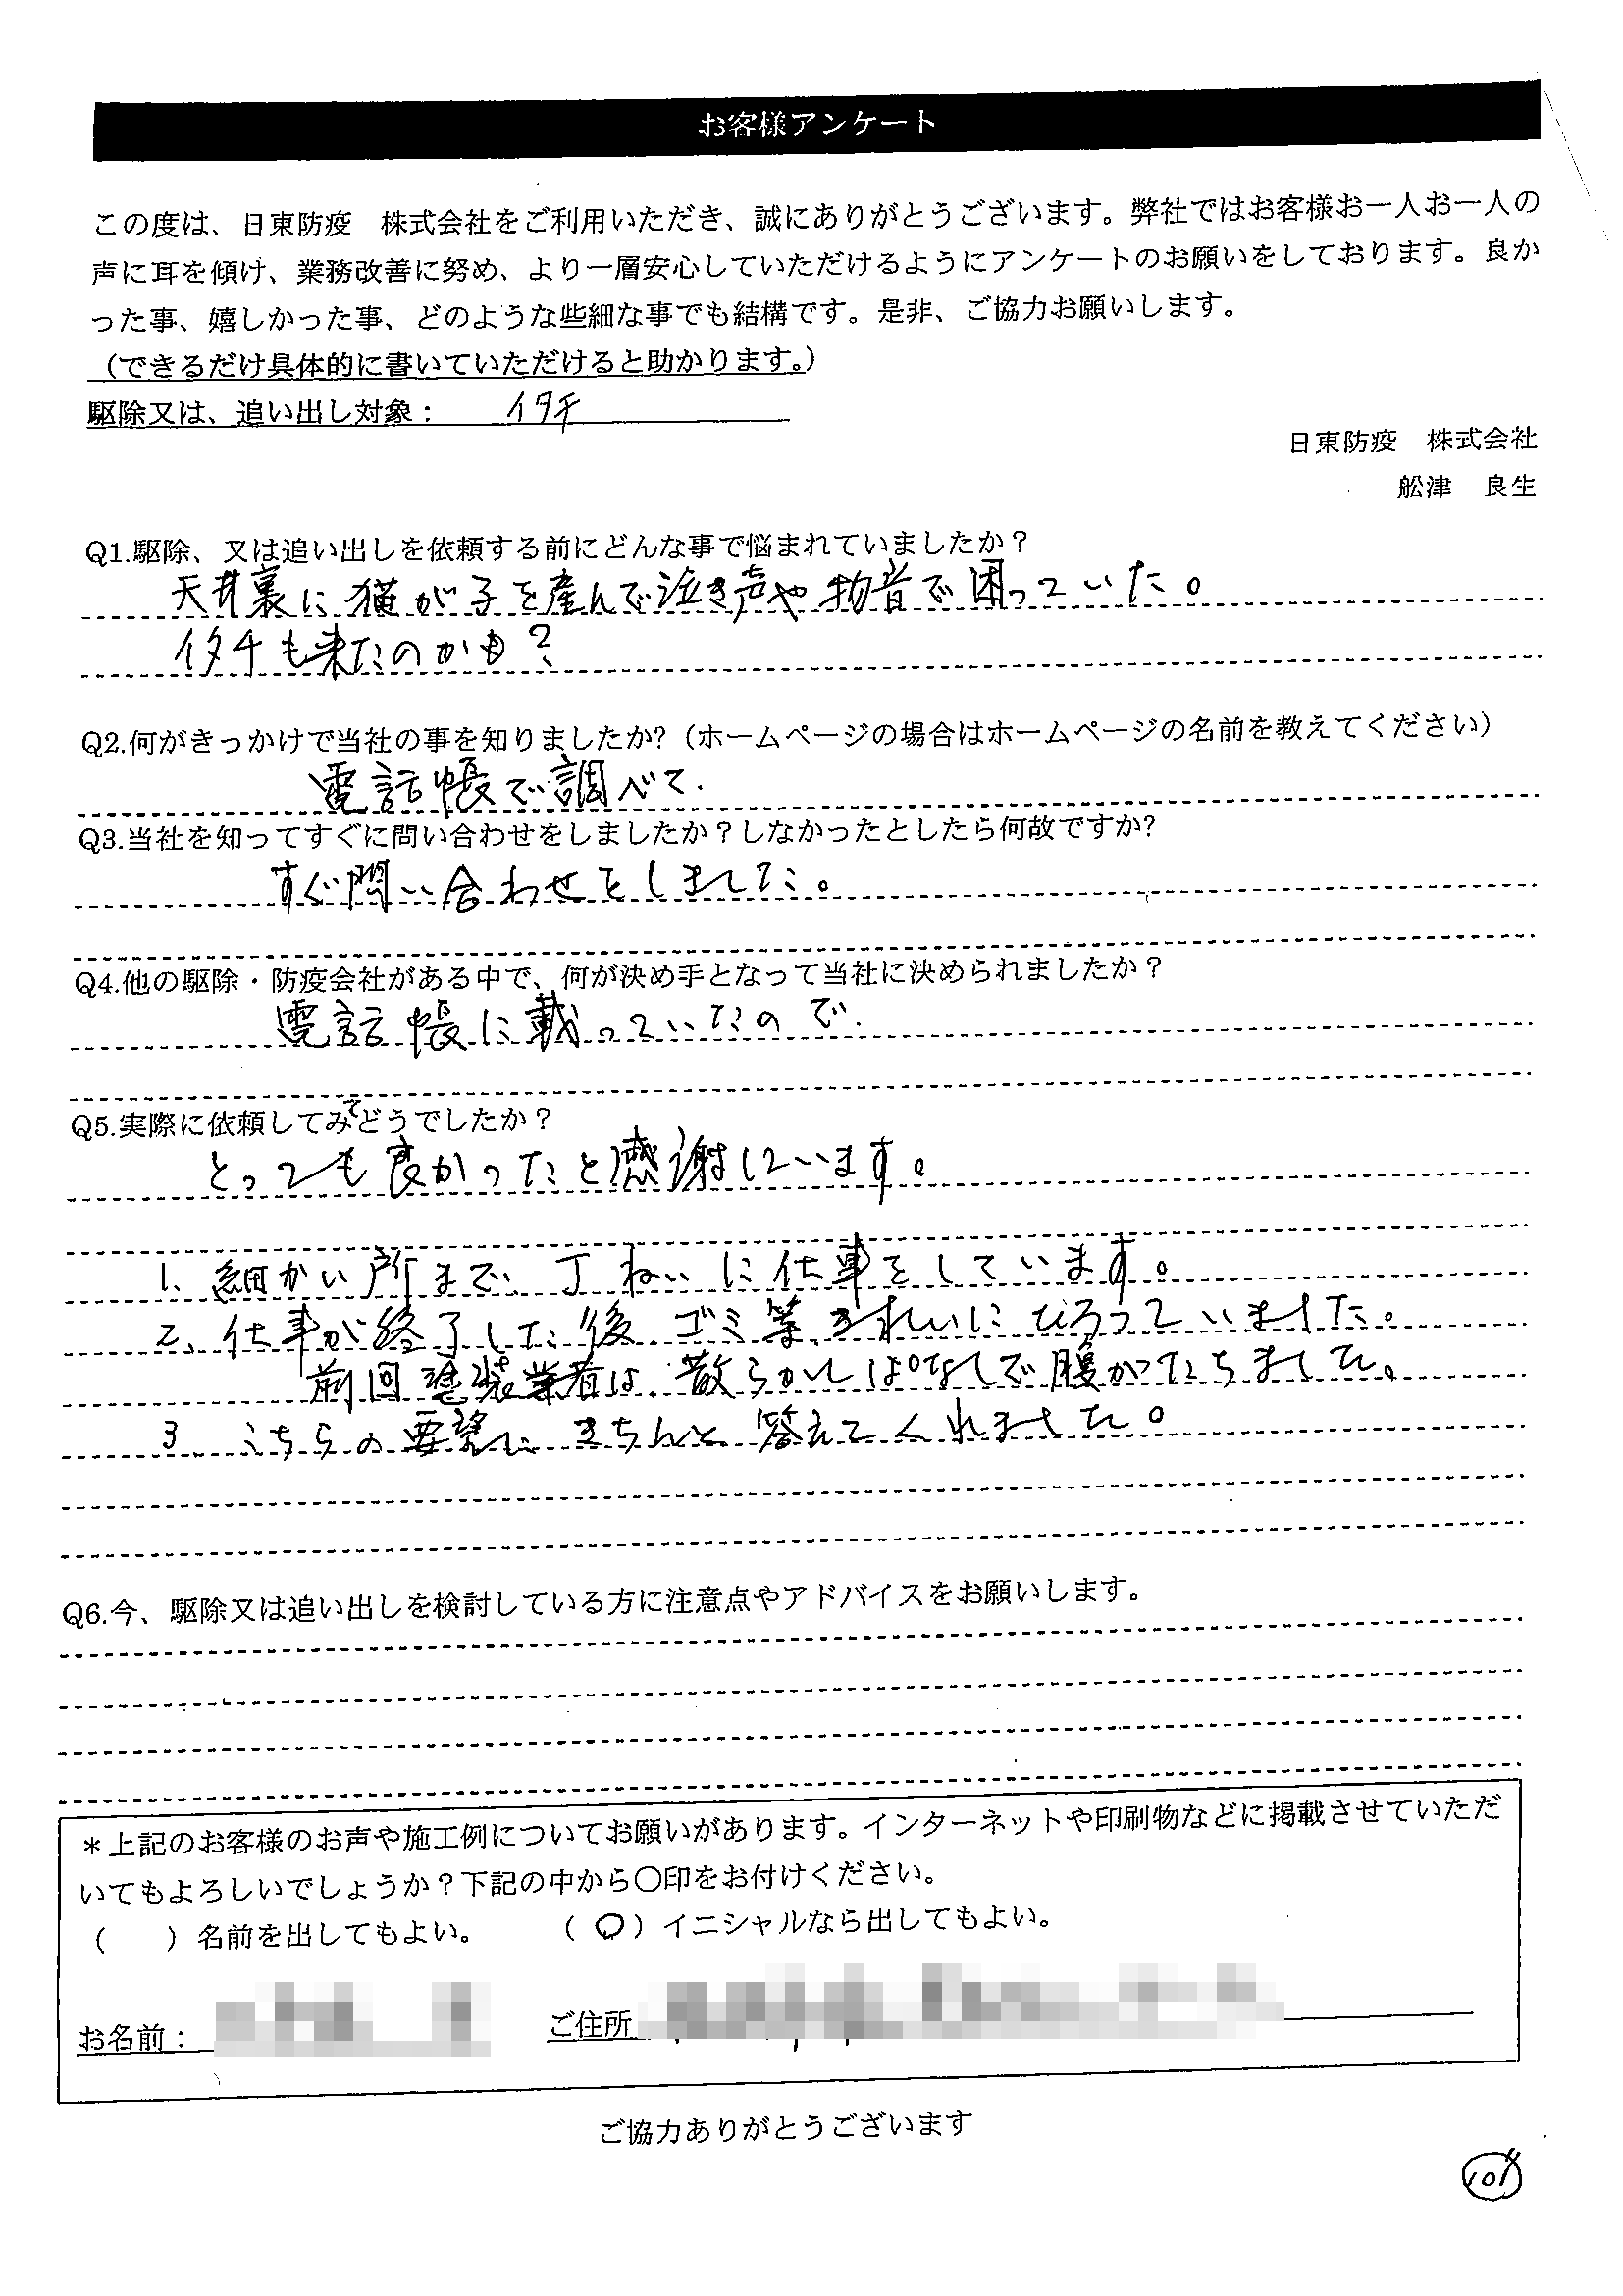 お客様アンケート
この度は、日東防疫　株式会社をご利用いただき、誠にありがとうございます。弊社ではお客様お一人お一人の
声に耳を傾け、業務改善に努め、より一層安心していただけるようにアンケートのお願いをしております。良か
った事、嬉しかった事、どのような些細な事でも結構です。是非、ご協力お願いします。
（できるだけ具体的に書いていただけると助かります。）
駆除又は、追い出し対象： イタチ
日東防疫　株式会社
舩津　良生
Q1.駆除、又は追い出しを依頼する前にどんな事で悩まれていましたか？
天井裏に猫が子を産んで泣き声や物音で困っていた。
イタチも来たのかも？
Q2.何がきっかけで当社の事を知りましたか?（ホームページの場合はホームページの名前を教えてください）
電話帳で調べて.
Q3.当社を知ってすぐに問い合わせをしましたか？しなかったとしたら何故ですか?
すぐ問い合わせをしました。
Q4.他の駆除・防疫会社がある中で、何が決め手となって当社に決められましたか？
電話帳に載っていたので.
Q5.実際に依頼してみてどうでしたか？
とっても良かったと感謝しています。
1、細かい所まで、丁ねいに仕事をしています。
2、仕事が終了した後 ゴミ等きれいにひろっていました。
前回塗装業者は、散らかしぱなしで腹がたちました。
3、こちらの要望に きちんと 答えてくれました。
Q6.今、駆除又は追い出しを検討している方に注意点やアドバイスをお願いします。
＊上記のお客様のお声や施工例についてお願いがあります。インターネットや印刷物などに掲載させていただ
いてもよろしいでしょうか？下記の中から〇印をお付けください。
（　　）名前を出してもよい。　　（〇）イニシャルなら出してもよい。
お名前：　　ご住所
ご協力ありがとうございます